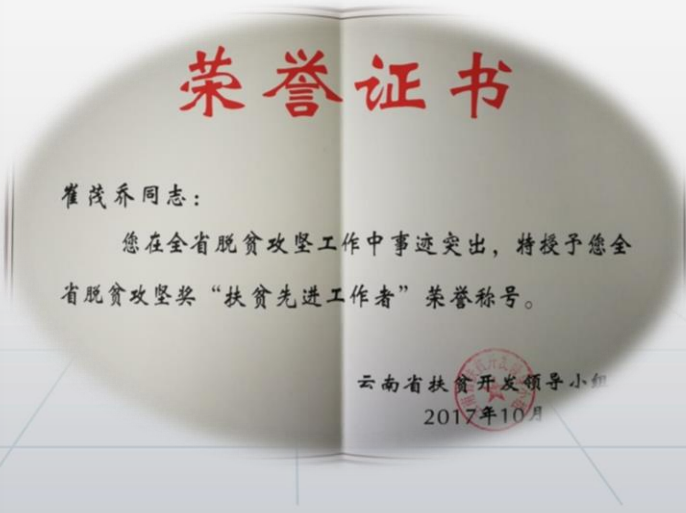 荣誉证书
崔茂乔同志：
您在全省脱贫攻坚工作中事迹突出，特授予您全
省脱贫攻坚奖“扶贫先进工作者”荣誉称号。
云南省扶贫开发领导小组
2017年10月